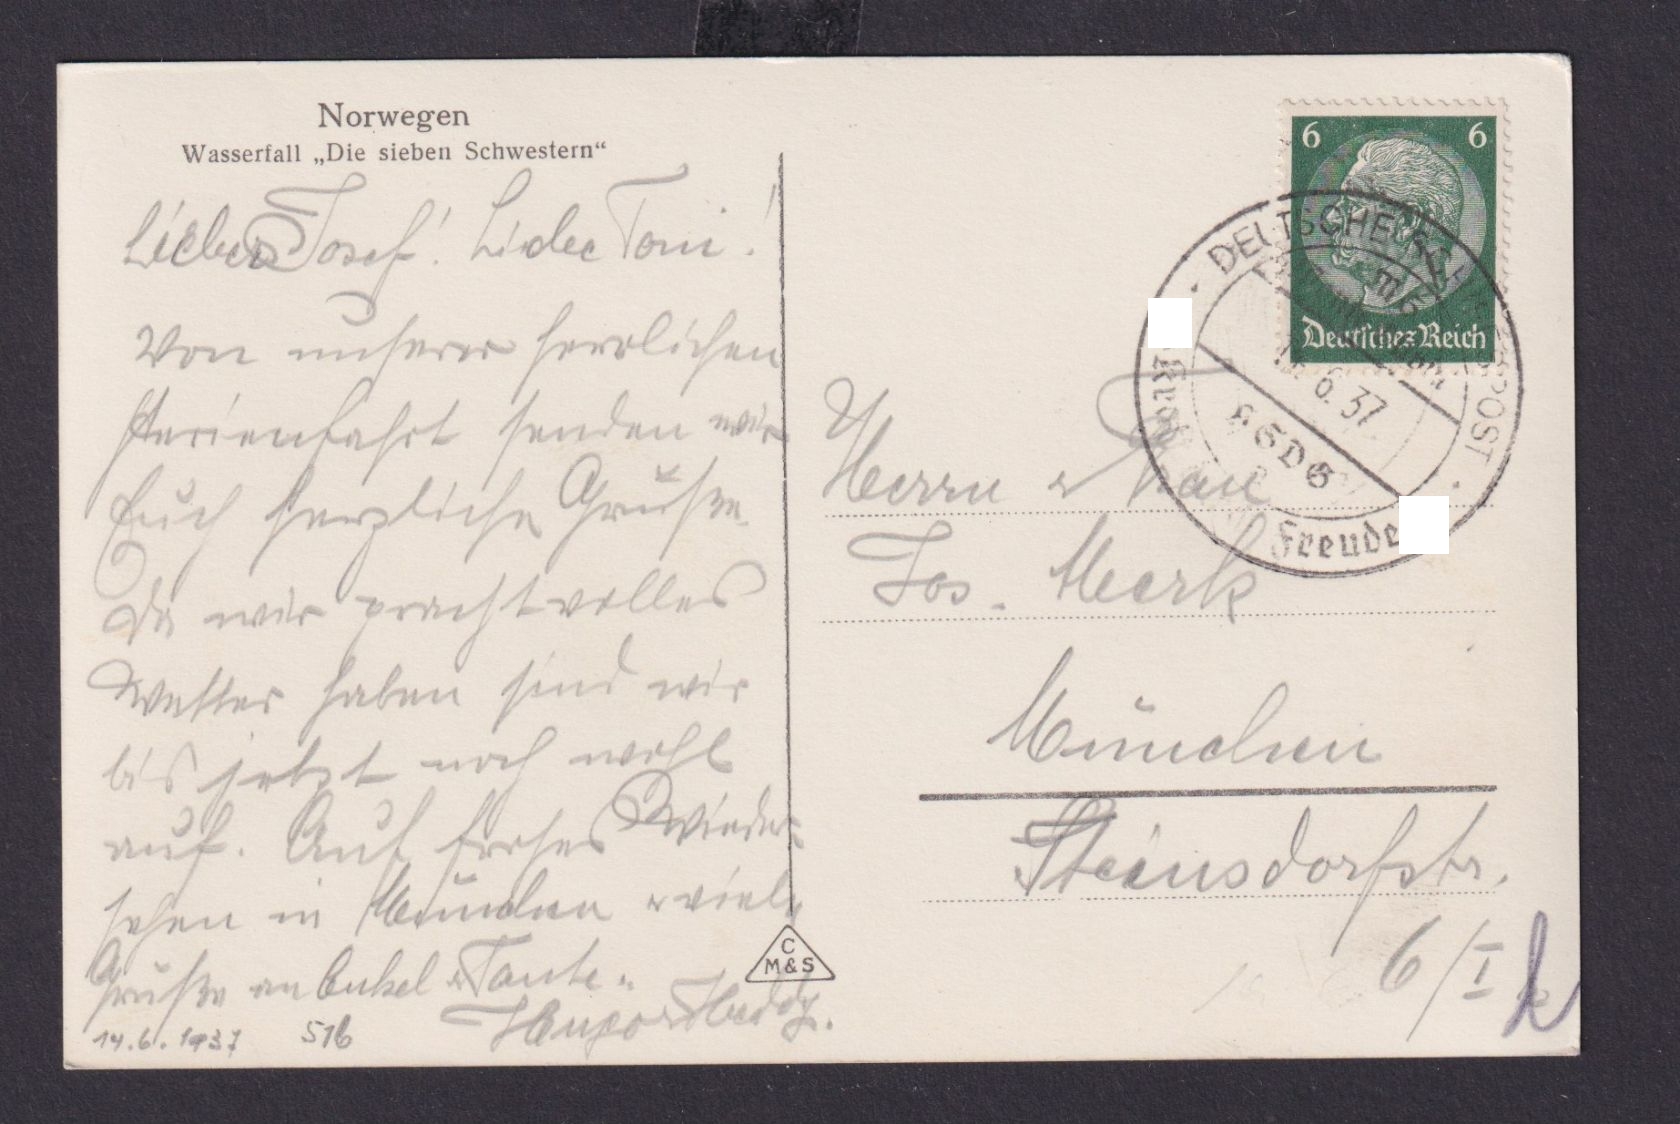 Norwegen
Wasserfall „Die sieben Schwestern“
Lieber Josef! Liebe Toni!
Von unserer herrlichen
Ferienfahrt senden wir
Euch herzliche Grüße.
Da wir prachtvolles
Wetter haben sind wir
bis jetzt noch wohl
auf. Auf frohes Wieder
sehen in München u viele
Grüße an Onkel u Tante.
14.6.1937 516
C
M&S
6 6
Deutsches Reich
DEUTSCHE SCHIFFSPOST
6.37
Kraft
Freude
Herrn u Frau
Jos. Merk
München
Steinsdorfstr.
6/I